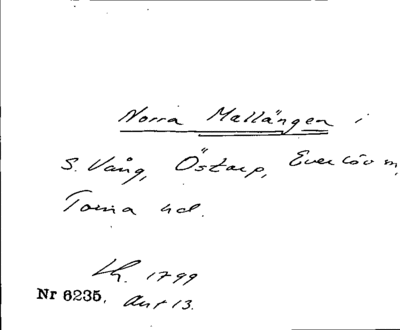 Norra Mellängen i
S. Vång, Östarp, Everlöv m,
Torna hd.
Lh. 1799
Nr 6235. Akt 13.